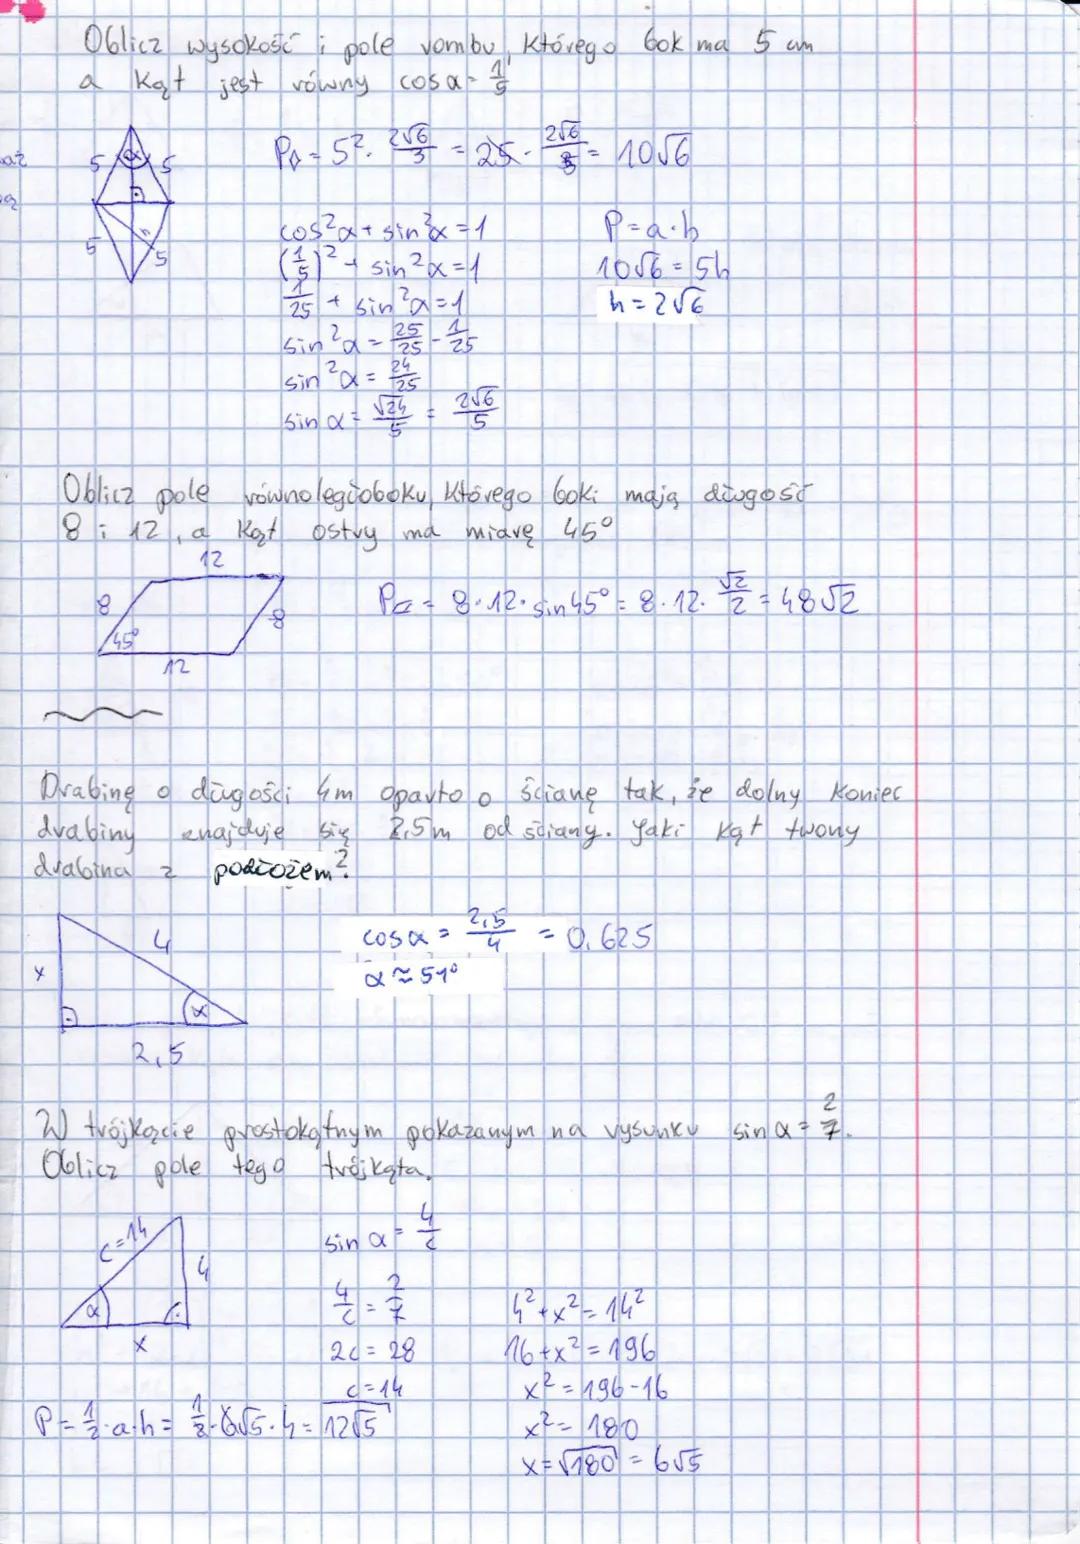 Oblicz wysokość i pole rombu, którego bok ma 5 cm
a kąt jest równy cos α = 1/5
5 α 5
5 5
P◊ = 5² · 2√6/3 = 25 · 2√6/5 = 10√6
cos²α + sin²α = 1
(1/5)² + sin²α = 1
1/25 + sin²α = 1
sin²α = 25/25 - 1/25
sin²α = 24/25
sin α = √24/5 = 2√6/5
P = a · h
10√6 = 5h
h = 2√6
Oblicz pole równoległoboku, którego boki mają długość
8 i 12, a kąt ostry ma miarę 45°
12
8 8
45°
12
P▱ = 8 · 12 · sin 45° = 8 · 12 · √2/2 = 48√2
Drabinę o długości 4m oparto o ścianę tak, że dolny koniec
drabiny znajduje się 2,5m od ściany. Jaki kąt tworzy
drabina z podłożem?
4
x
α
2,5
cos α = 2,5/4 = 0.625
α ≈ 51°
W trójkącie prostokątnym pokazanym na rysunku sin α = 2/7.
Oblicz pole tego trójkąta.
c = 14
4
α
x
sin α = 4/c
4/c = 2/7
2c = 28
c = 14
4² + x² = 14²
16 + x² = 196
x² = 196 - 16
x² = 180
x = √180 = 6√5
P = 1/2 · a · h = 1/2 · 6√5 · 4 = 12√5